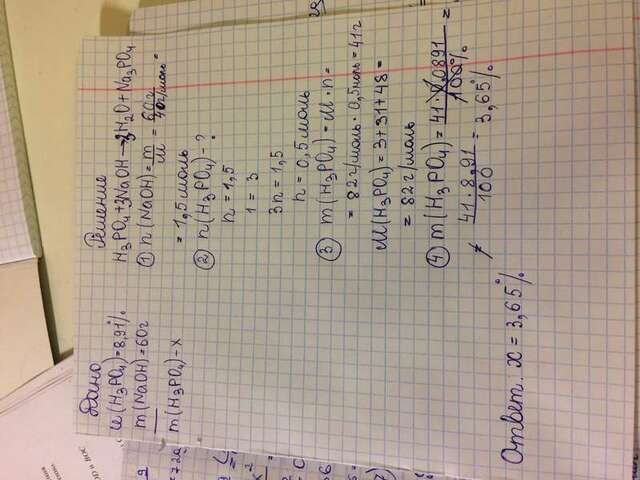 Дано
ω(H₃PO₄)=8,91%
m(NaOH)=60г
m(H₃PO₄)-x
Решение
H₃PO₄+3NaOH→3H₂O+Na₃PO₄
① n(NaOH)=m/M=60г/40г/моль=
=1,5моль
② n(H₃PO₄)-?
n=1,5
1=3
3n=1,5
n=0,5моль
③ m(H₃PO₄)=M·n=
=82г/моль·0,5моль=41г
M(H₃PO₄)=3+31+48=
=82г/моль
④ m(H₃PO₄)=41·0,0891/100% =
=41·8,91/100=3,65%
Ответ: x=3,65%